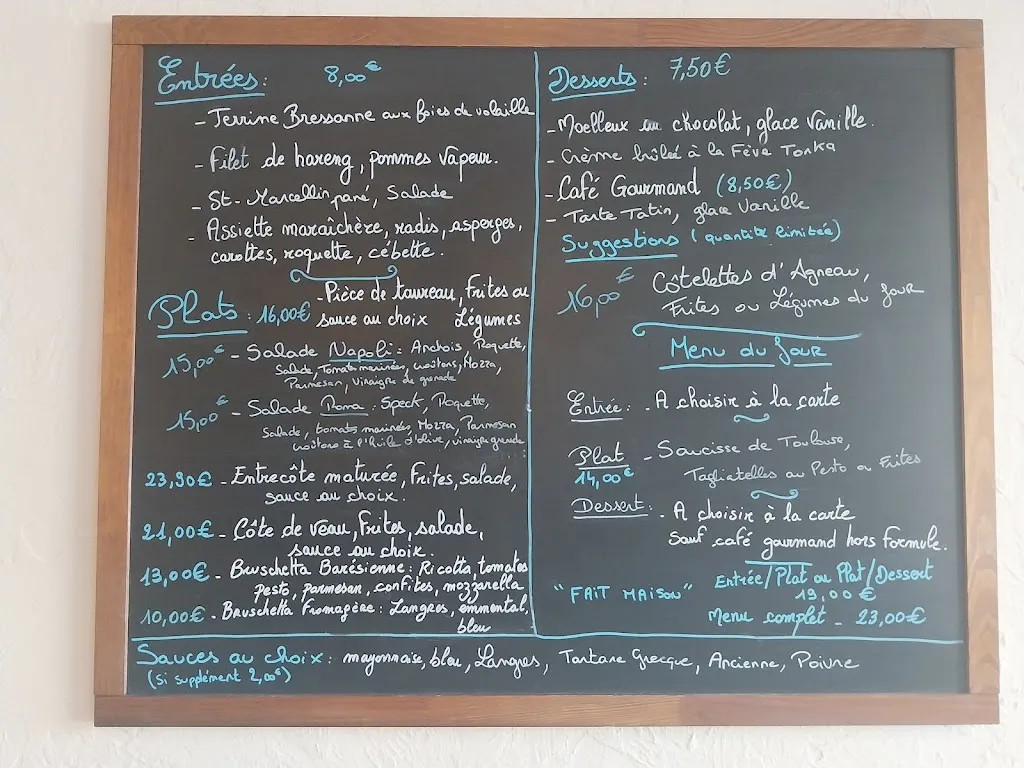 Entrées: 8,00€
- Terrine Bressanne aux foies de volaille
- Filet de hareng, pommes vapeur.
- St-Marcellin pané, Salade
- Assiette maraîchère, radis, asperges,
carottes, roquette, cébette.
Plats: 16,00€ - Pièce de taureau, Frites ou
sauce au choix Légumes
15,00€ - Salade Napoli: Anchois, Roquette,
Salade, Tomates marinées, croûtons, Mozza,
Parmesan, Vinaigre de grenade
15,00€ - Salade Roma: Speck, Roquette,
Salade, tomates marinées, Mozza, Parmesan
croûtons à l'huile d'olive, vinaigre grenade
23,90€ - Entrecôte maturée, Frites, salade,
sauce au choix.
21,00€ - Côte de veau, frites, salade,
sauce au choix.
13,00€ - Bruschetta Barésienne: Ricotta, tomates
pesto, parmesan, confites, mozzarella
10,00€ - Bruschetta Fromagère: Langres, emmental,
bleu
Desserts: 7,50€
- Moelleux au chocolat, glace Vanille.
- Crème brûlée à la Fève Tonka
- Café Gourmand (8,50€)
- Tarte Tatin, glace Vanille
Suggestions (quantité limitée)
16,00€ Côtelettes d'Agneau,
Frites ou Légumes du jour
Menu du Jour
Entrée: - A choisir à la carte
Plat - Saucisse de Toulouse,
14,00€ Tagliatelles au Pesto ou Frites
Dessert: - A choisir à la carte
Sauf café gourmand hors formule.
"FAIT MAISON" Entrée/Plat ou Plat/Dessert
19,00€
Menu complet - 23,00€
Sauces au choix: mayonnaise, bleu, Langres, Tartare Grecque, Ancienne, Poivre
(Si supplément 2,00€)